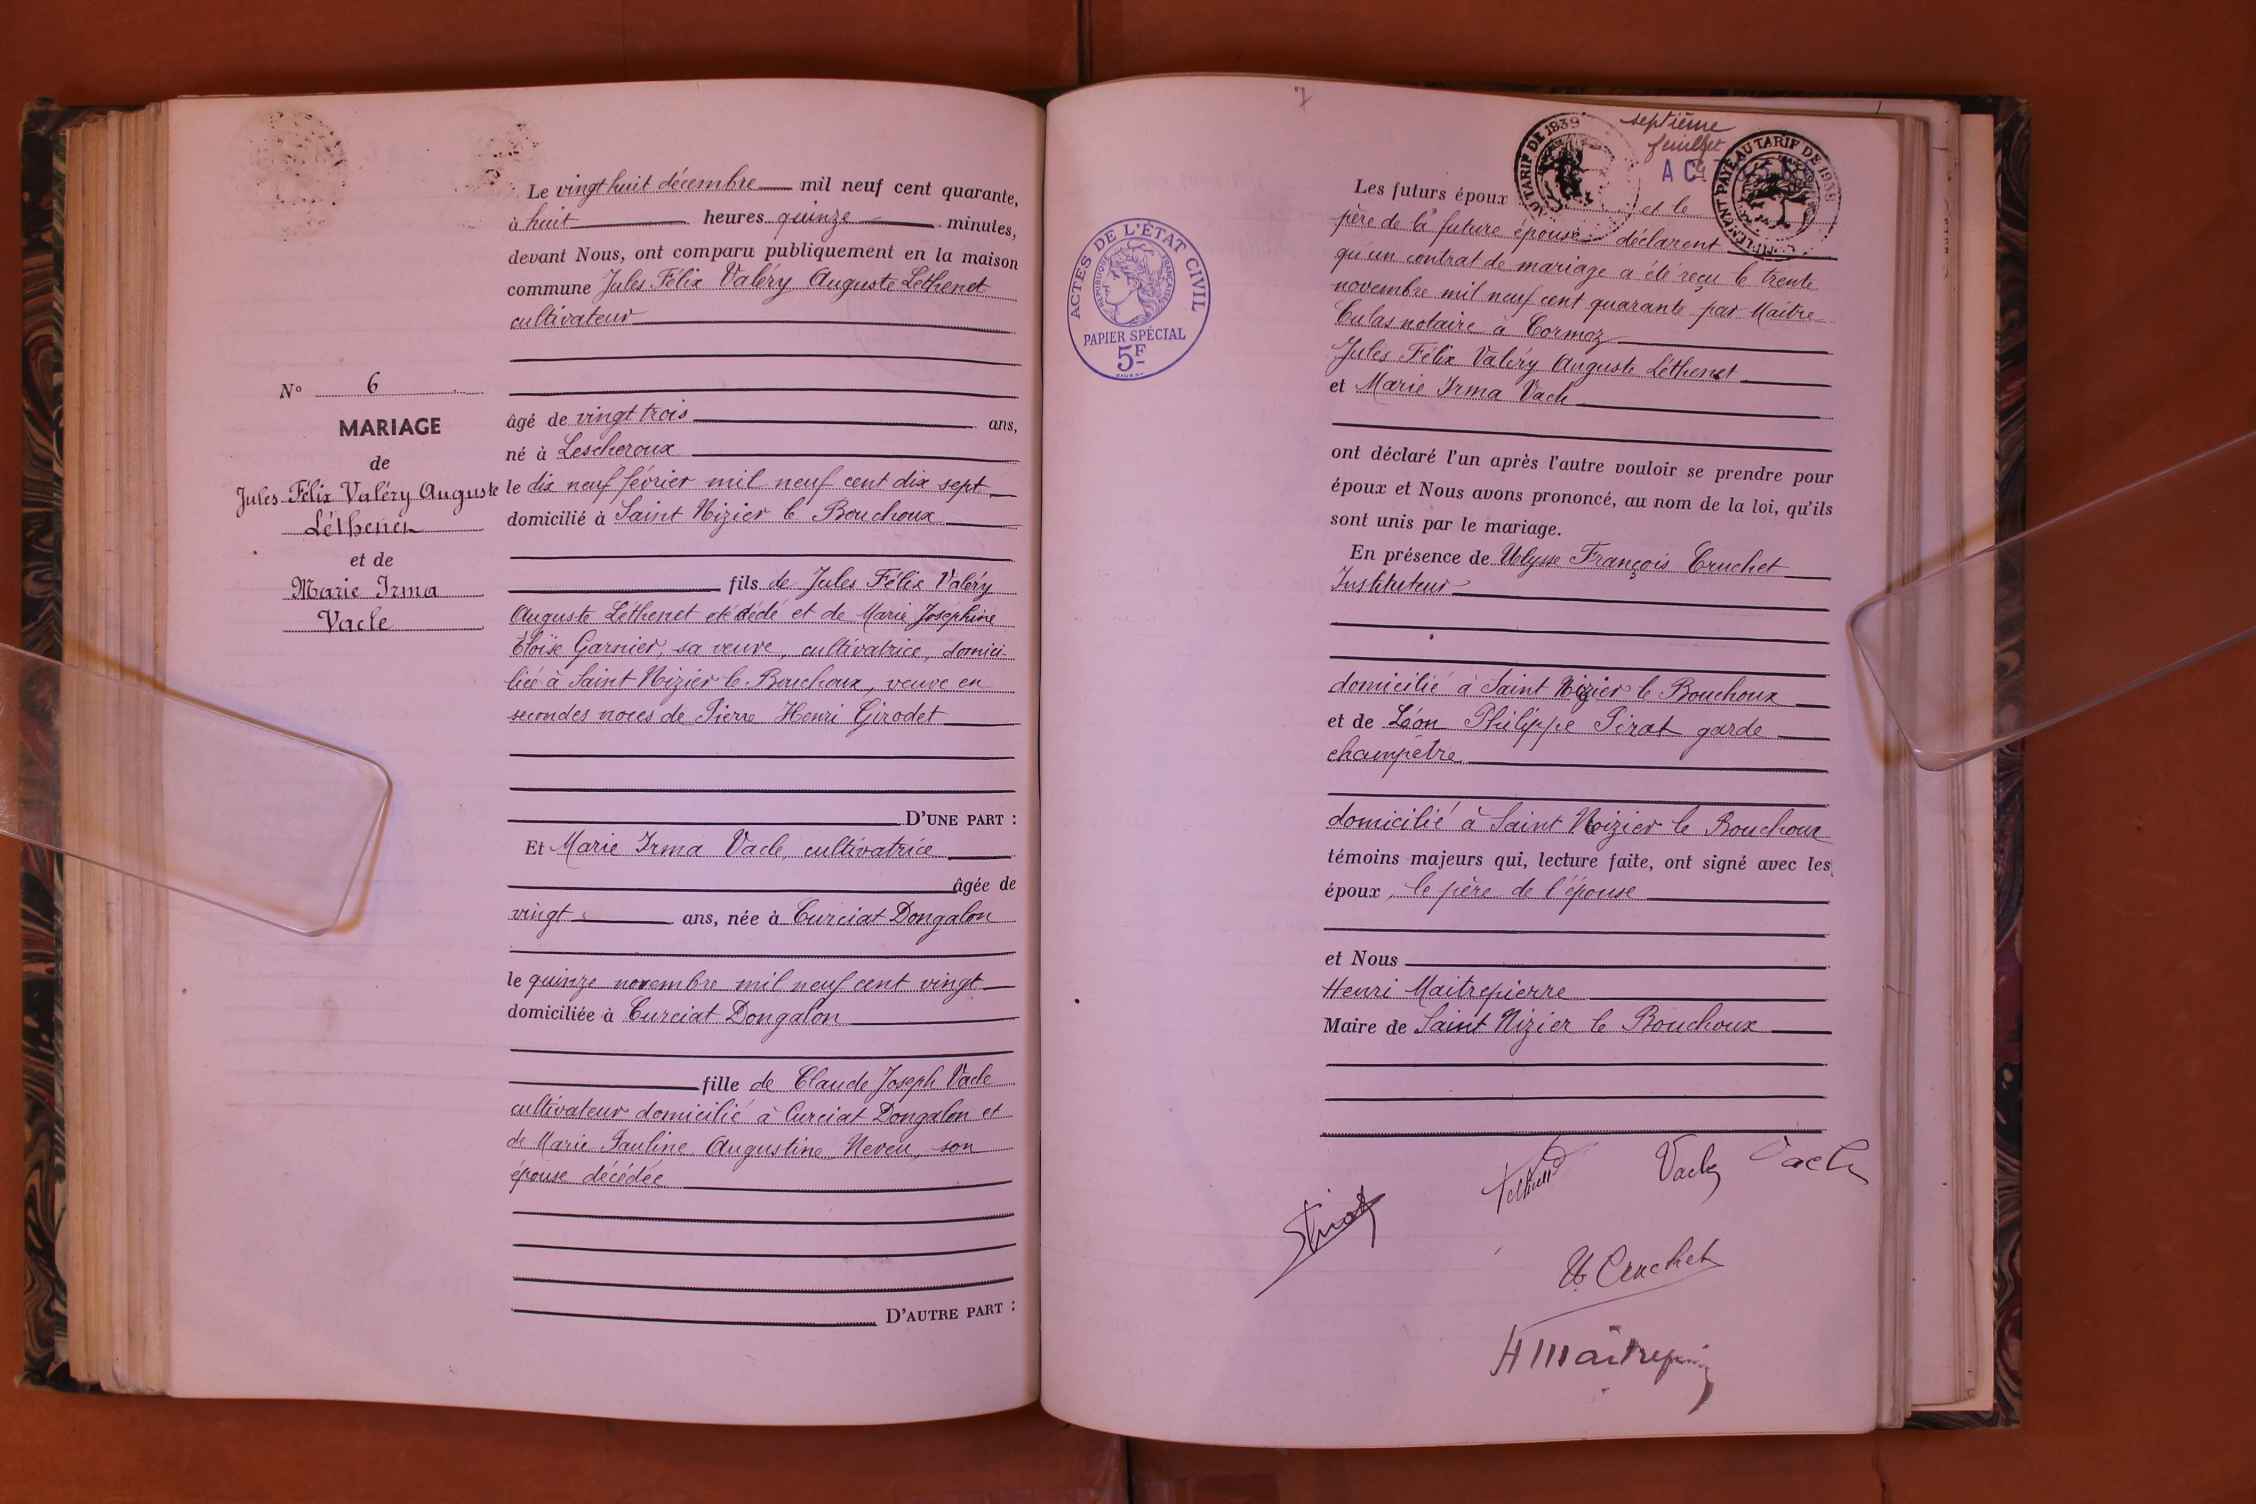 Le vingt huit décembre mil neuf cent quarante,
à huit heures quinze minutes,
devant Nous, ont comparu publiquement en la maison
commune Jules Félix Valéry Auguste Léthenet
cultivateur
N° 6
MARIAGE
de
Jules Félix Valéry Auguste
Léthenet
et de
Marie Irma
Vacle
âgé de vingt trois ans,
né à Lescheroux
le dix neuf février mil neuf cent dix sept
domicilié à Saint Nizier le Bouchoux
fils de Jules Félix Valéry
Auguste Léthenet décédé et de Marie Joséphine
Eloïse Garnier, sa veuve, cultivatrice, domici-
liée à Saint Nizier le Bouchoux, veuve en
secondes noces de Pierre Henri Girodet
D'UNE PART :
Et Marie Irma Vacle, cultivatrice
âgée de
vingt ans, née à Curciat Dongalon
le quinze novembre mil neuf cent vingt
domiciliée à Curciat Dongalon
fille de Claude Joseph Vacle
cultivateur domicilié à Curciat Dongalon et
de Marie Pauline Augustine Neveu, son
épouse décédée
D'AUTRE PART :
7
septième
feuillet
AU TARIF DE 1939
PAYÉ AU TARIF DE 1938
ACTES DE L'ÉTAT CIVIL
RÉPUBLIQUE FRANÇAISE
PAPIER SPÉCIAL
5F
Les futurs époux et le
père de la future épouse déclarent
qu'un contrat de mariage a été reçu le trente
novembre mil neuf cent quarante par Maître
Culas notaire à Cormoz
Jules Félix Valéry Auguste Léthenet
et Marie Irma Vacle
ont déclaré l'un après l'autre vouloir se prendre pour
époux et Nous avons prononcé, au nom de la loi, qu'ils
sont unis par le mariage.
En présence de Ulysse François Cruchet
Instituteur
domicilié à Saint Nizier le Bouchoux
et de Léon Philippe Pirat garde
champêtre
domicilié à Saint Nizier le Bouchoux
témoins majeurs qui, lecture faite, ont signé avec les
époux, le père de l'épouse
et Nous
Henri Maitrepierre
Maire de Saint Nizier le Bouchoux
Léthenet Vacle Vacle
Pirat
U Cruchet
H Maitrepierre